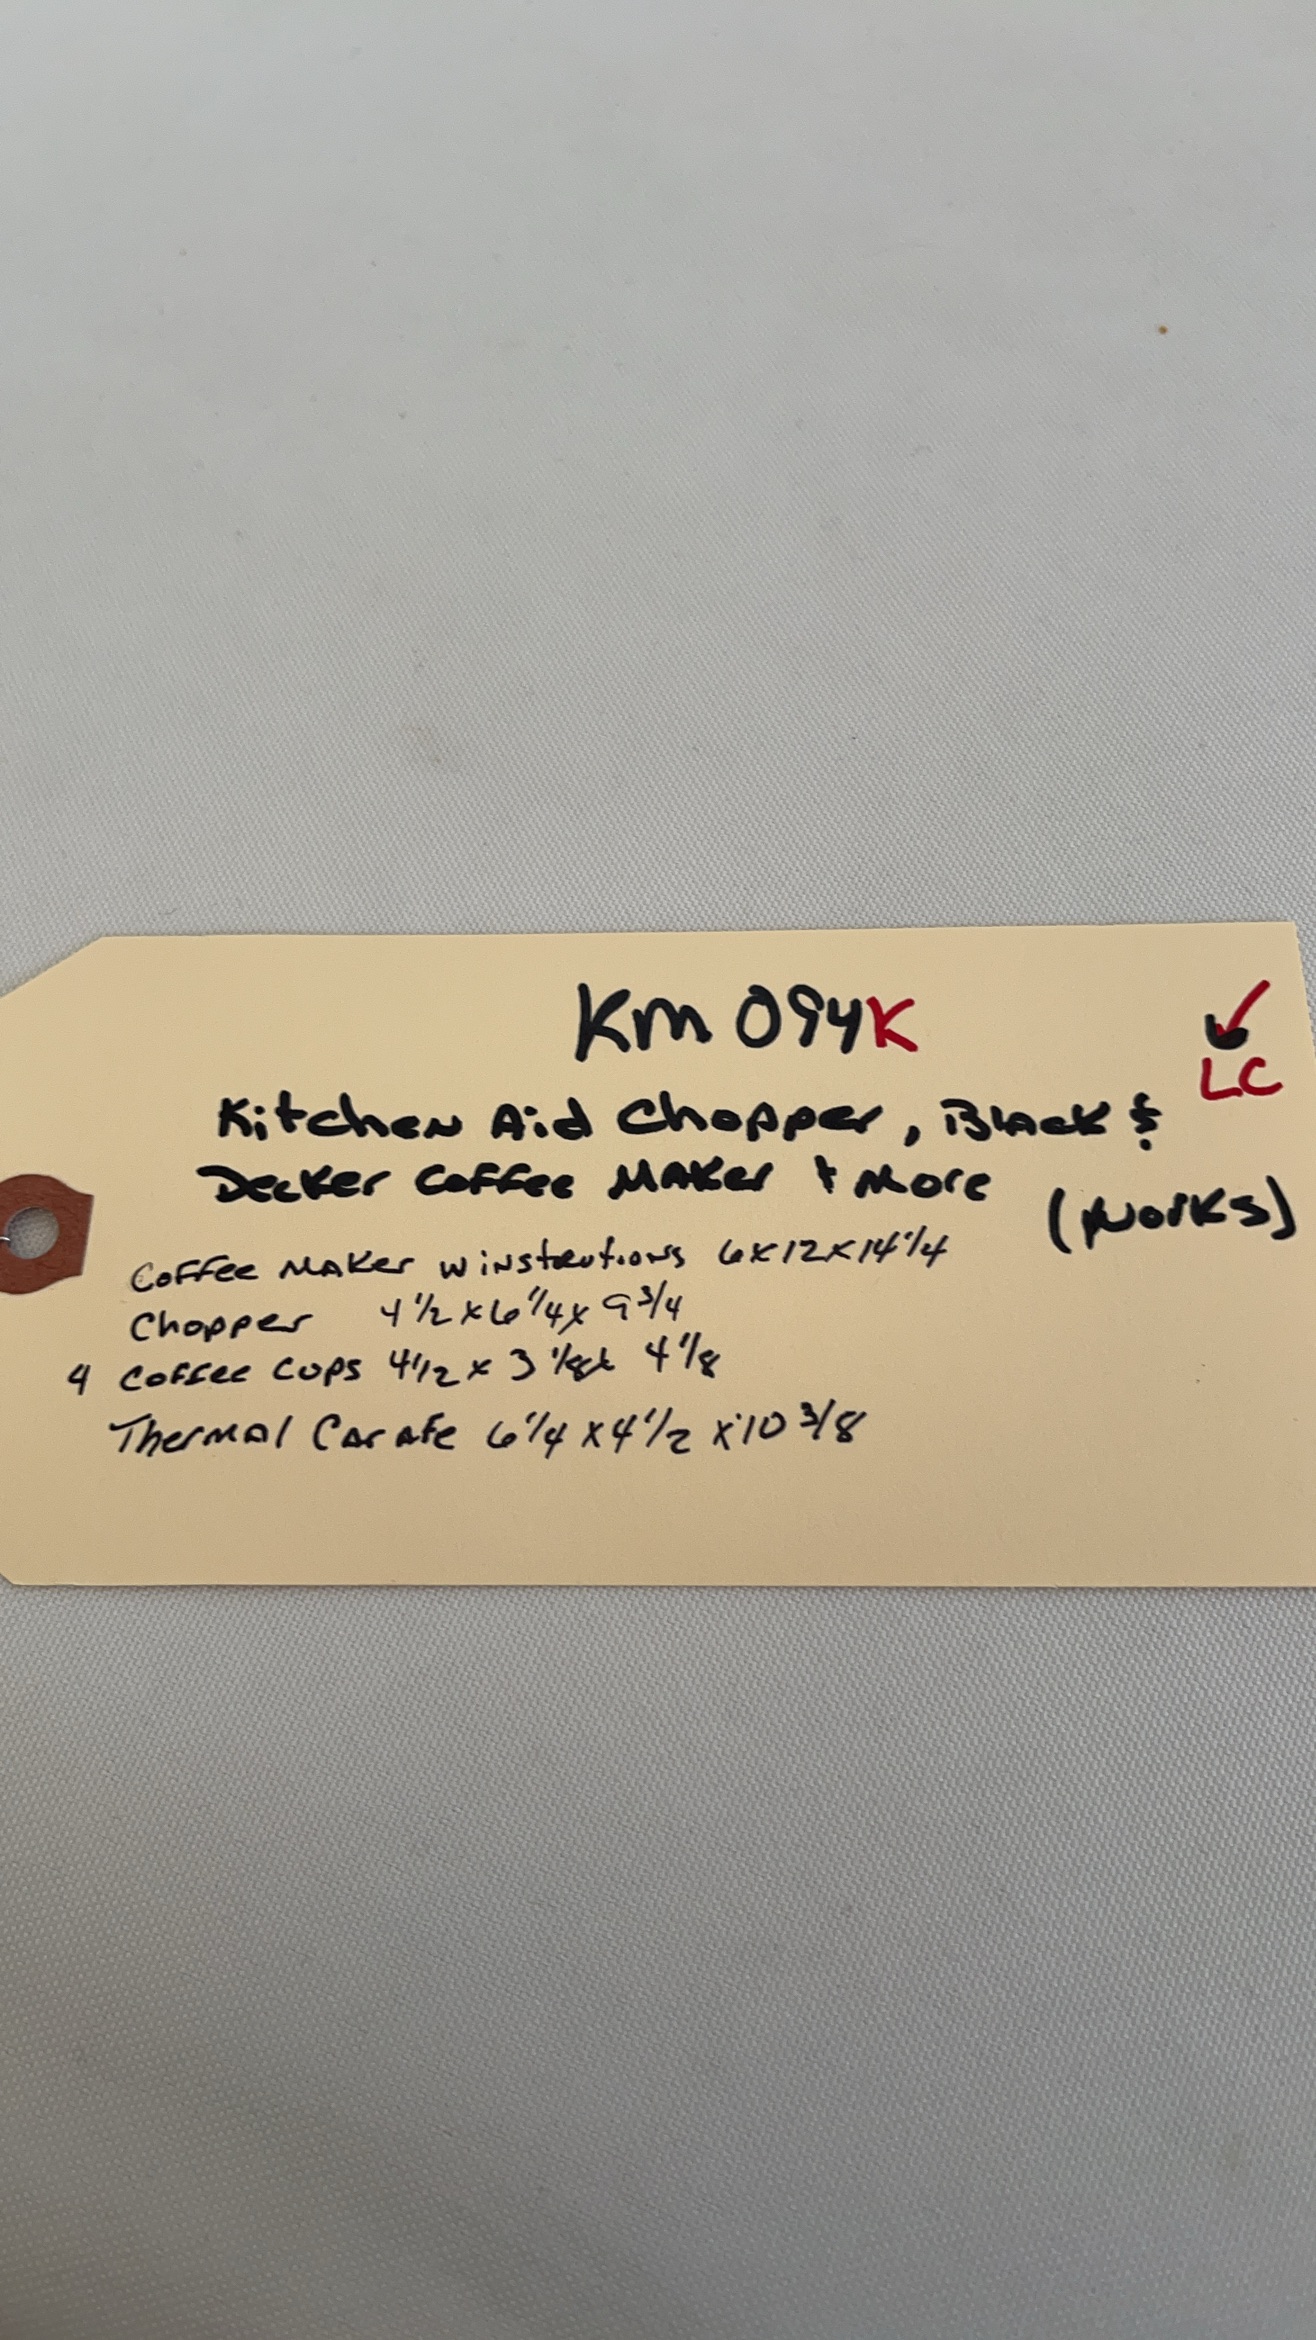 KM 094K
✓
LC
Kitchen Aid Chopper, Black &
Decker Coffee Maker + More
(works)
Coffee Maker w instrutions 6x12x14 1/4
Chopper 4 1/2 x 6 1/4 x 9 3/4
4 Coffee Cups 4 1/2 x 3 1/8 x 4 1/8
Thermal Carafe 6 1/4 x 4 1/2 x 10 3/8